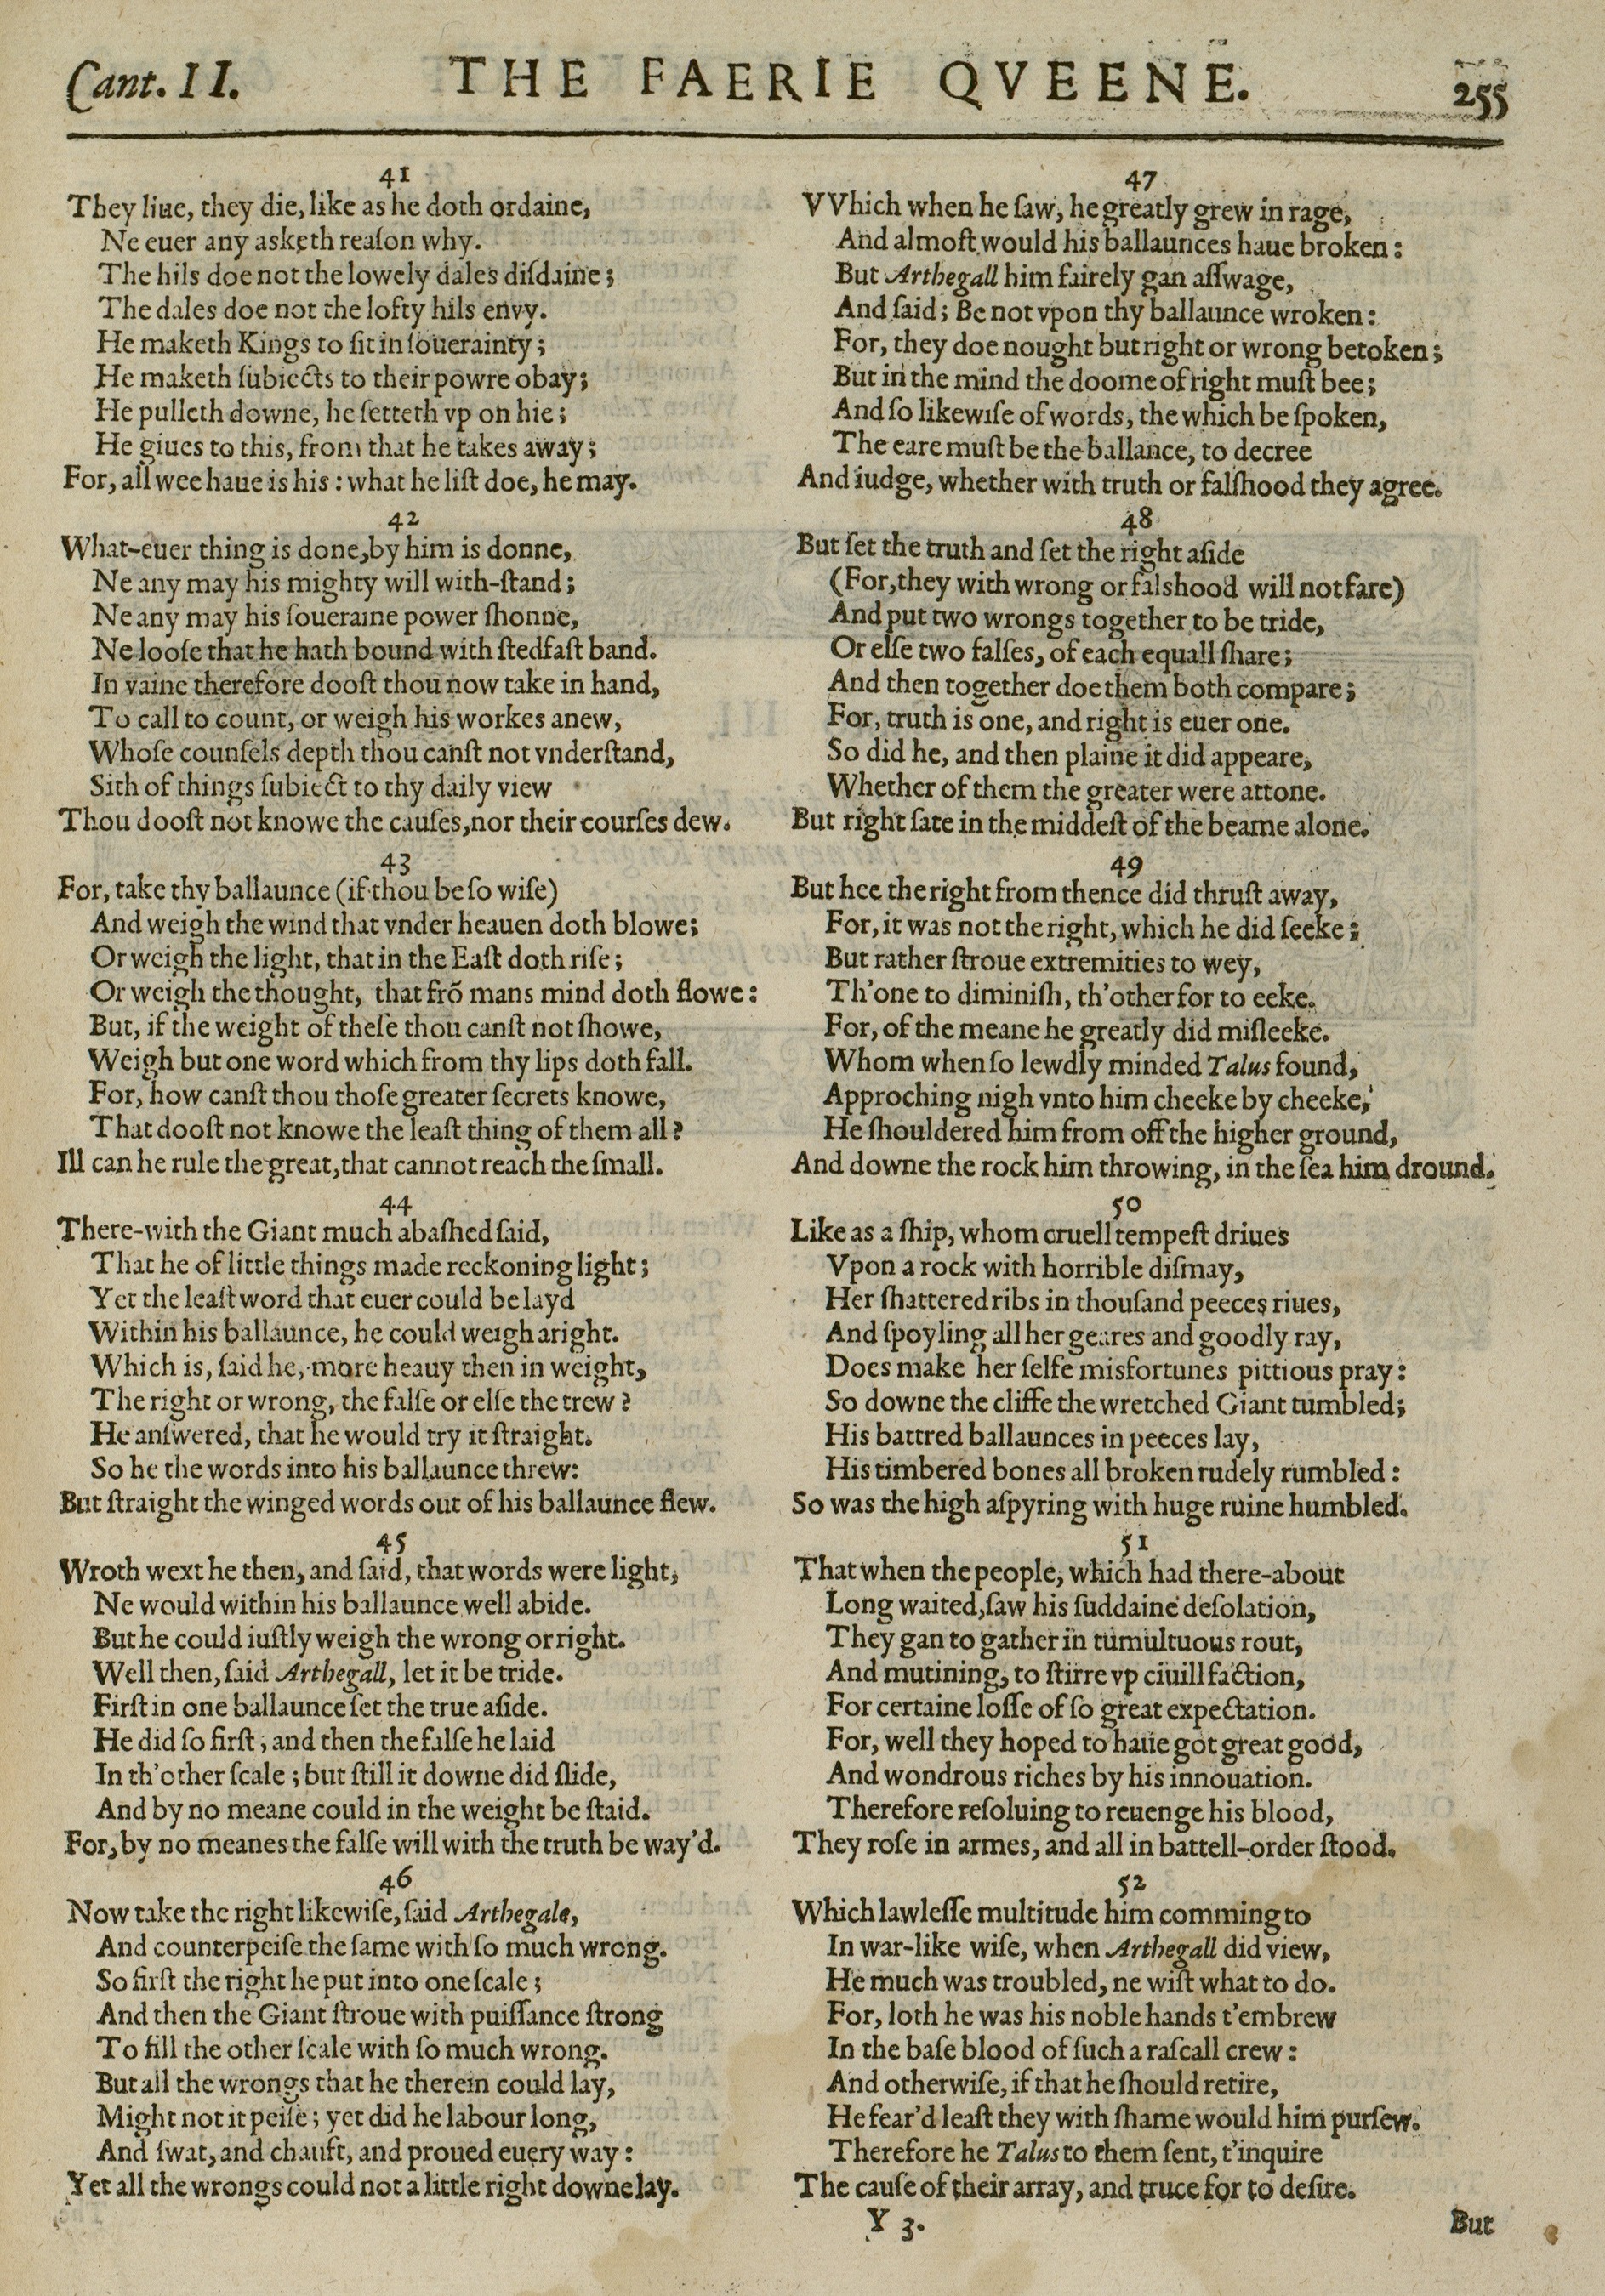 Cant. II.
THE FAERIE QVEENE.
255
41
They liue, they die, like as he doth ordaine,
Ne euer any asketh reaſon why.
The hils doe not the lowely dales diſdaine;
The dales doe not the lofty hils envy.
He maketh Kings to ſit in ſouerainty;
He maketh ſubiects to their powre obay;
He pulleth downe, he ſetteth vp on hie;
He giues to this, from that he takes away;
For, all wee haue is his: what he liſt doe, he may.
42
What-euer thing is done, by him is donne,
Ne any may his mighty will with-ſtand;
Ne any may his ſoueraine power ſhonne,
Ne looſe that he hath bound with ſtedfaſt band.
In vaine therefore dooſt thou now take in hand,
To call to count, or weigh his workes anew,
Whoſe counſels depth thou canſt not vnderſtand,
Sith of things ſubiect to thy daily view
Thou dooſt not knowe the cauſes, nor their courſes dew.
43
For, take thy ballaunce (if thou be ſo wiſe)
And weigh the wind that vnder heauen doth blowe;
Or weigh the light, that in the Eaſt doth riſe;
Or weigh the thought, that frō mans mind doth flowe:
But, if the weight of theſe thou canſt not ſhowe,
Weigh but one word which from thy lips doth fall.
For, how canſt thou thoſe greater ſecrets knowe,
That dooſt not knowe the leaſt thing of them all?
Ill can he rule the great, that cannot reach the ſmall.
44
There-with the Giant much abaſhed ſaid,
That he of little things made reckoning light;
Yet the leaſt word that euer could be layd
Within his ballaunce, he could weigh aright.
Which is, ſaid he, more heauy then in weight,
The right or wrong, the falſe or elſe the trew?
He anſwered, that he would try it ſtraight.
So he the words into his ballaunce threw:
But ſtraight the winged words out of his ballaunce flew.
45
Wroth wext he then, and ſaid, that words were light,
Ne would within his ballaunce well abide.
But he could iuſtly weigh the wrong or right.
Well then, ſaid Arthegall, let it be tride.
Firſt in one ballaunce ſet the true aſide.
He did ſo firſt, and then the falſe he laid
In th'other ſcale; but ſtill it downe did ſlide,
And by no meane could in the weight be ſtaid.
For, by no meanes the falſe will with the truth be way'd.
46
Now take the right likewiſe, ſaid Arthegale,
And counterpeiſe the ſame with ſo much wrong.
So firſt the right he put into one ſcale;
And then the Giant ſtroue with puiſſance ſtrong
To fill the other ſcale with ſo much wrong.
But all the wrongs that he therein could lay,
Might not it peiſe; yet did he labour long,
And ſwat, and chauft, and proued euery way:
Yet all the wrongs could not a little right downe lay.
47
VVhich when he ſaw, he greatly grew in rage,
And almoſt would his ballaunces haue broken:
But Arthegall him fairely gan aſſwage,
And ſaid; Be not vpon thy ballaunce wroken:
For, they doe nought but right or wrong betoken;
But in the mind the doome of right muſt bee;
And ſo likewiſe of words, the which be ſpoken,
The eare muſt be the ballance, to decree
And iudge, whether with truth or falſhood they agree.
48
But ſet the truth and ſet the right aſide
(For, they with wrong or falshood will not fare)
And put two wrongs together to be tride,
Or elſe two falſes, of each equall ſhare;
And then together doe them both compare;
For, truth is one, and right is euer one.
So did he, and then plaine it did appeare,
Whether of them the greater were attone.
But right ſate in the middeſt of the beame alone.
49
But hee the right from thence did thruſt away,
For, it was not the right, which he did ſeeke;
But rather ſtroue extremities to wey,
Th'one to diminiſh, th'other for to eeke.
For, of the meane he greatly did miſleeke.
Whom when ſo lewdly minded Talus found,
Approching nigh vnto him cheeke by cheeke,
He ſhouldered him from off the higher ground,
And downe the rock him throwing, in the ſea him dround.
50
Like as a ſhip, whom cruell tempeſt driues
Vpon a rock with horrible diſmay,
Her ſhattered ribs in thouſand peeces riues,
And ſpoyling all her geares and goodly ray,
Does make her ſelfe misfortunes pittious pray:
So downe the cliffe the wretched Giant tumbled;
His battred ballaunces in peeces lay,
His timbered bones all broken rudely rumbled:
So was the high aſpyring with huge ruine humbled.
51
That when the people, which had there-about
Long waited, ſaw his ſuddaine deſolation,
They gan to gather in tumultuous rout,
And mutining, to ſtirre vp ciuill faction,
For certaine loſſe of ſo great expectation.
For, well they hoped to haue got great good,
And wondrous riches by his innouation.
Therefore reſoluing to reuenge his blood,
They roſe in armes, and all in battell-order ſtood.
52
Which lawleſſe multitude him comming to
In war-like wiſe, when Arthegall did view,
He much was troubled, ne wiſt what to do.
For, loth he was his noble hands t'embrew
In the baſe blood of ſuch a raſcall crew:
And otherwiſe, if that he ſhould retire,
He fear'd leaſt they with ſhame would him purſew.
Therefore he Talus to them ſent, t'inquire
The cauſe of their array, and truce for to deſire.
Y 3.
But